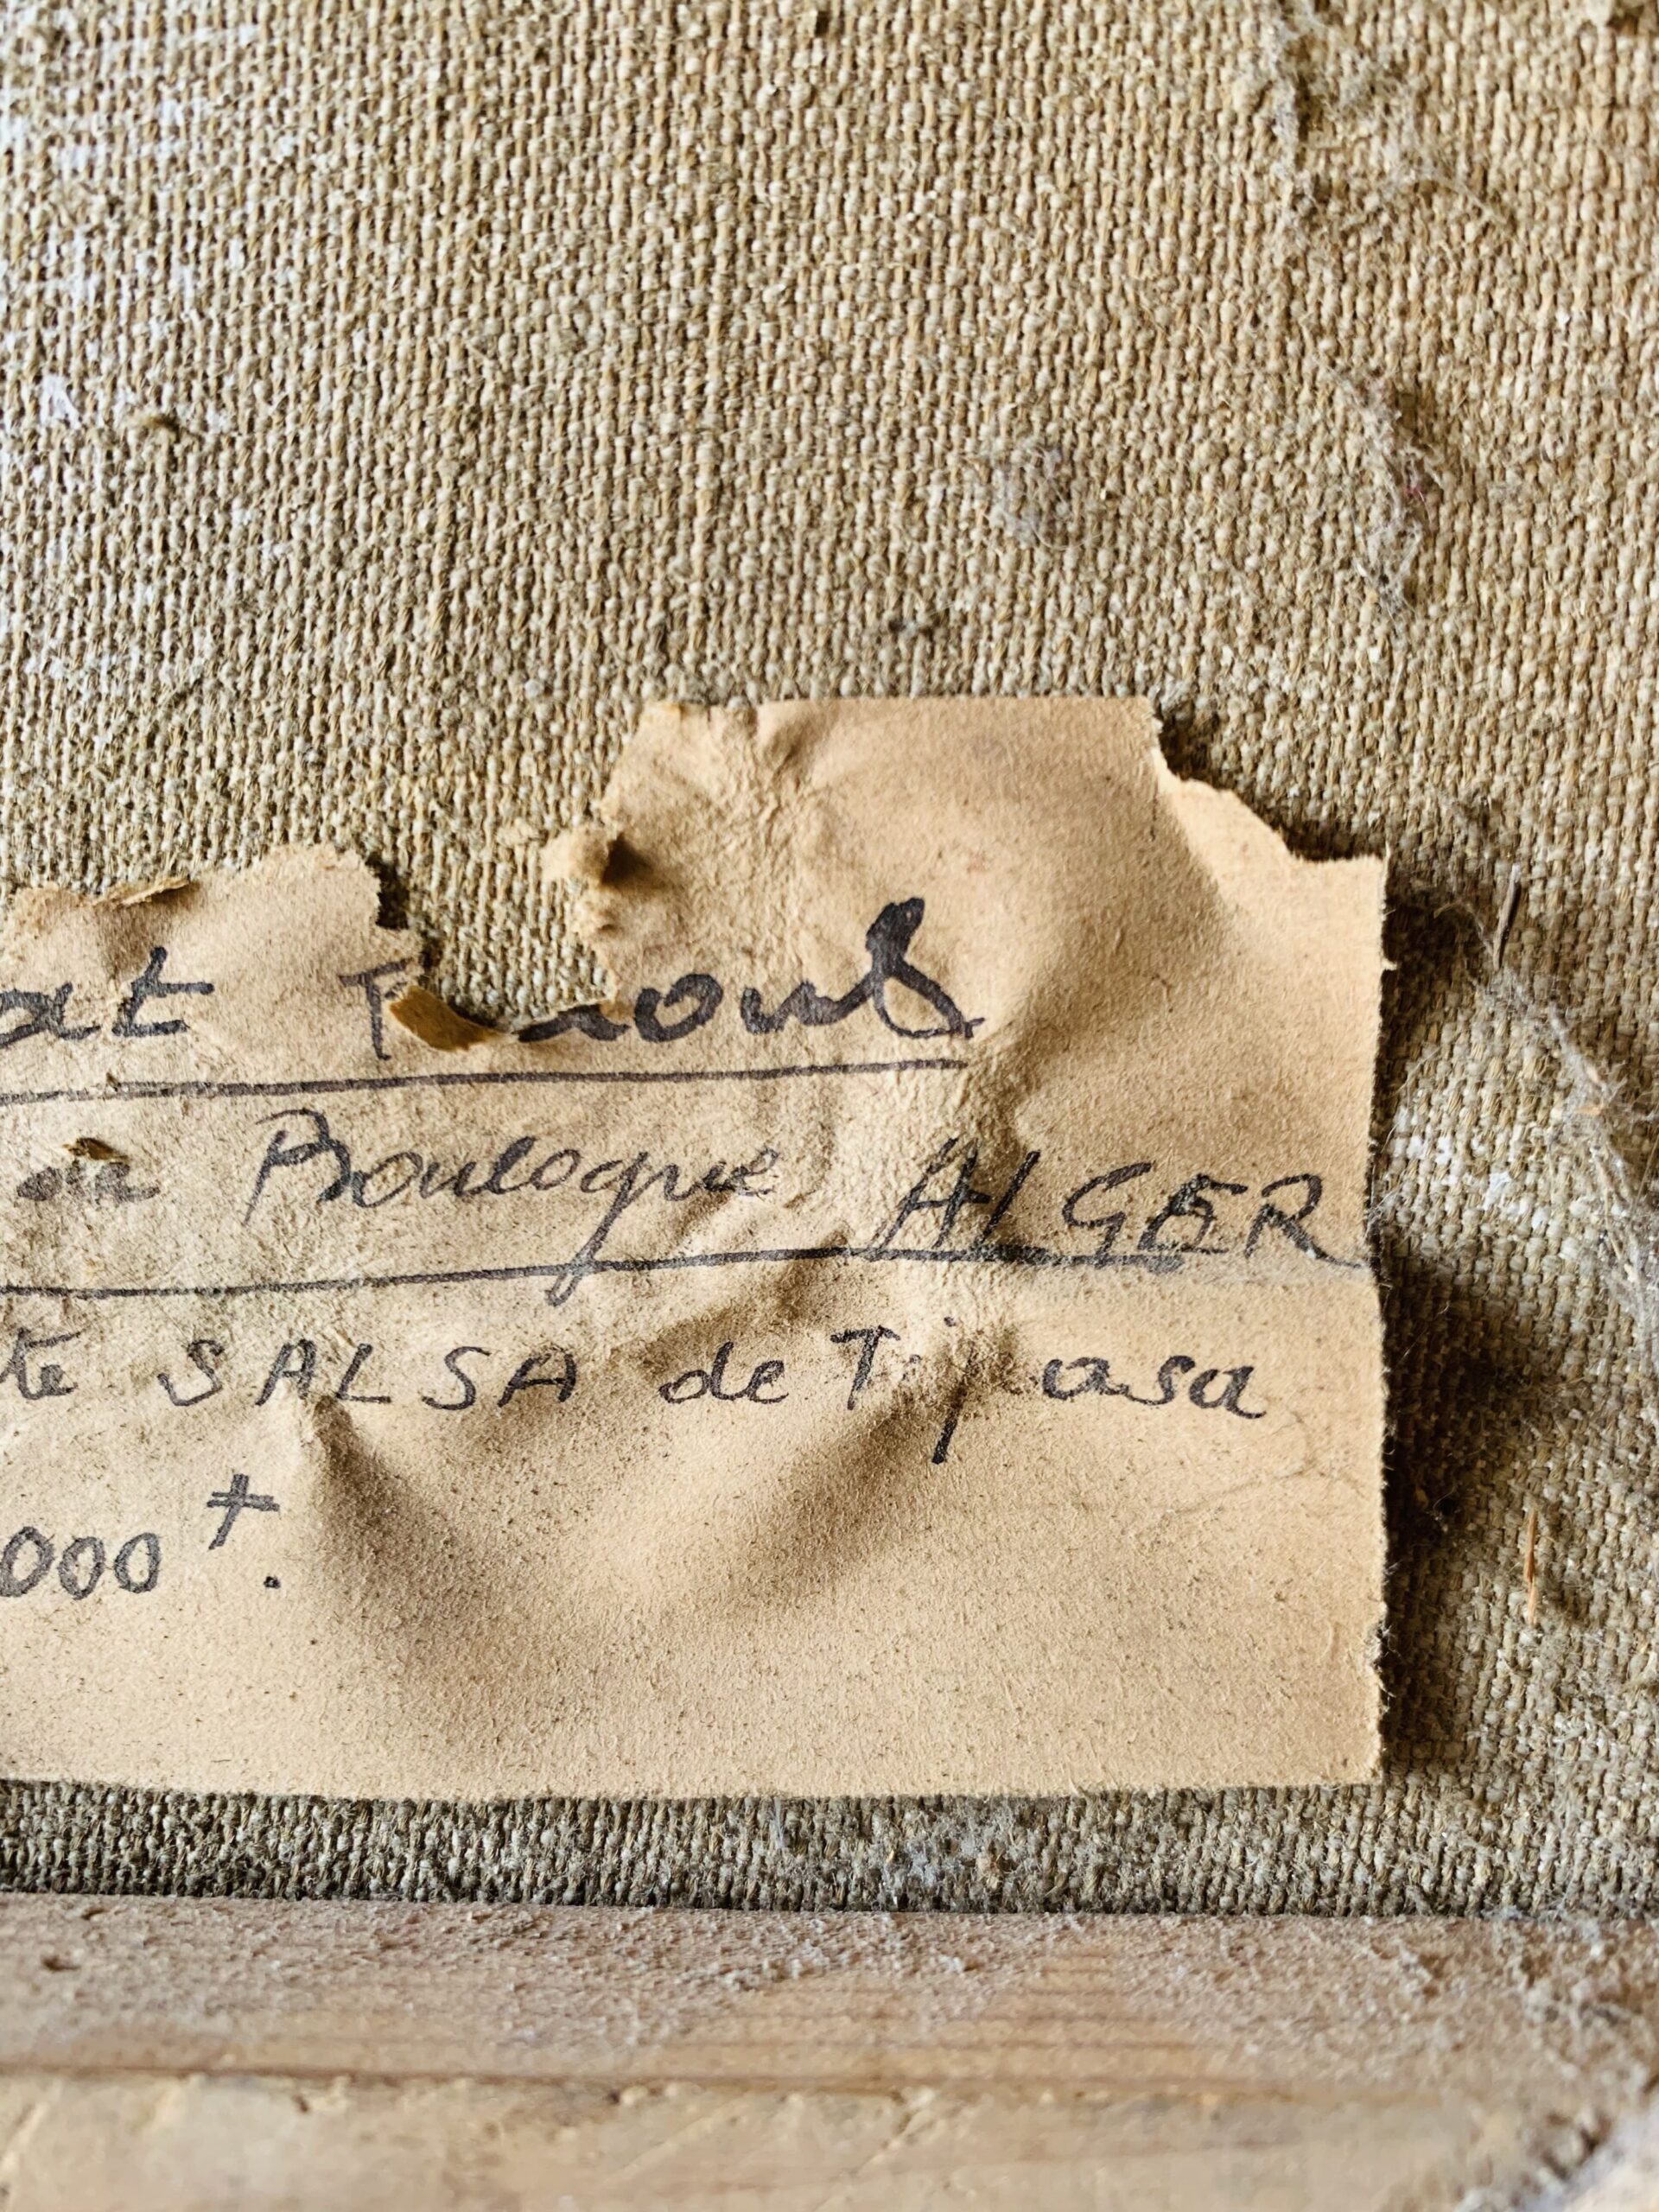 at Raoul
de Boulogne ALGER
te SALSA de Tipasa
000 ‡.